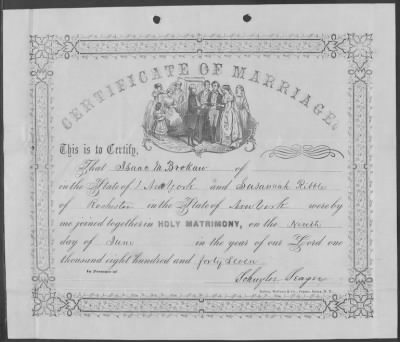 CERTIFICATE OF MARRIAGE.
This is to Certify,
That Isaac M. Brokaw of
in the State of New York and Susannah
of Rochester in the State of New York were by
me joined together in HOLY MATRIMONY, on the Ninth
day of June in the year of our Lord one
thousand eight hundred and forty seven
In Presence of
Schuyler Seager